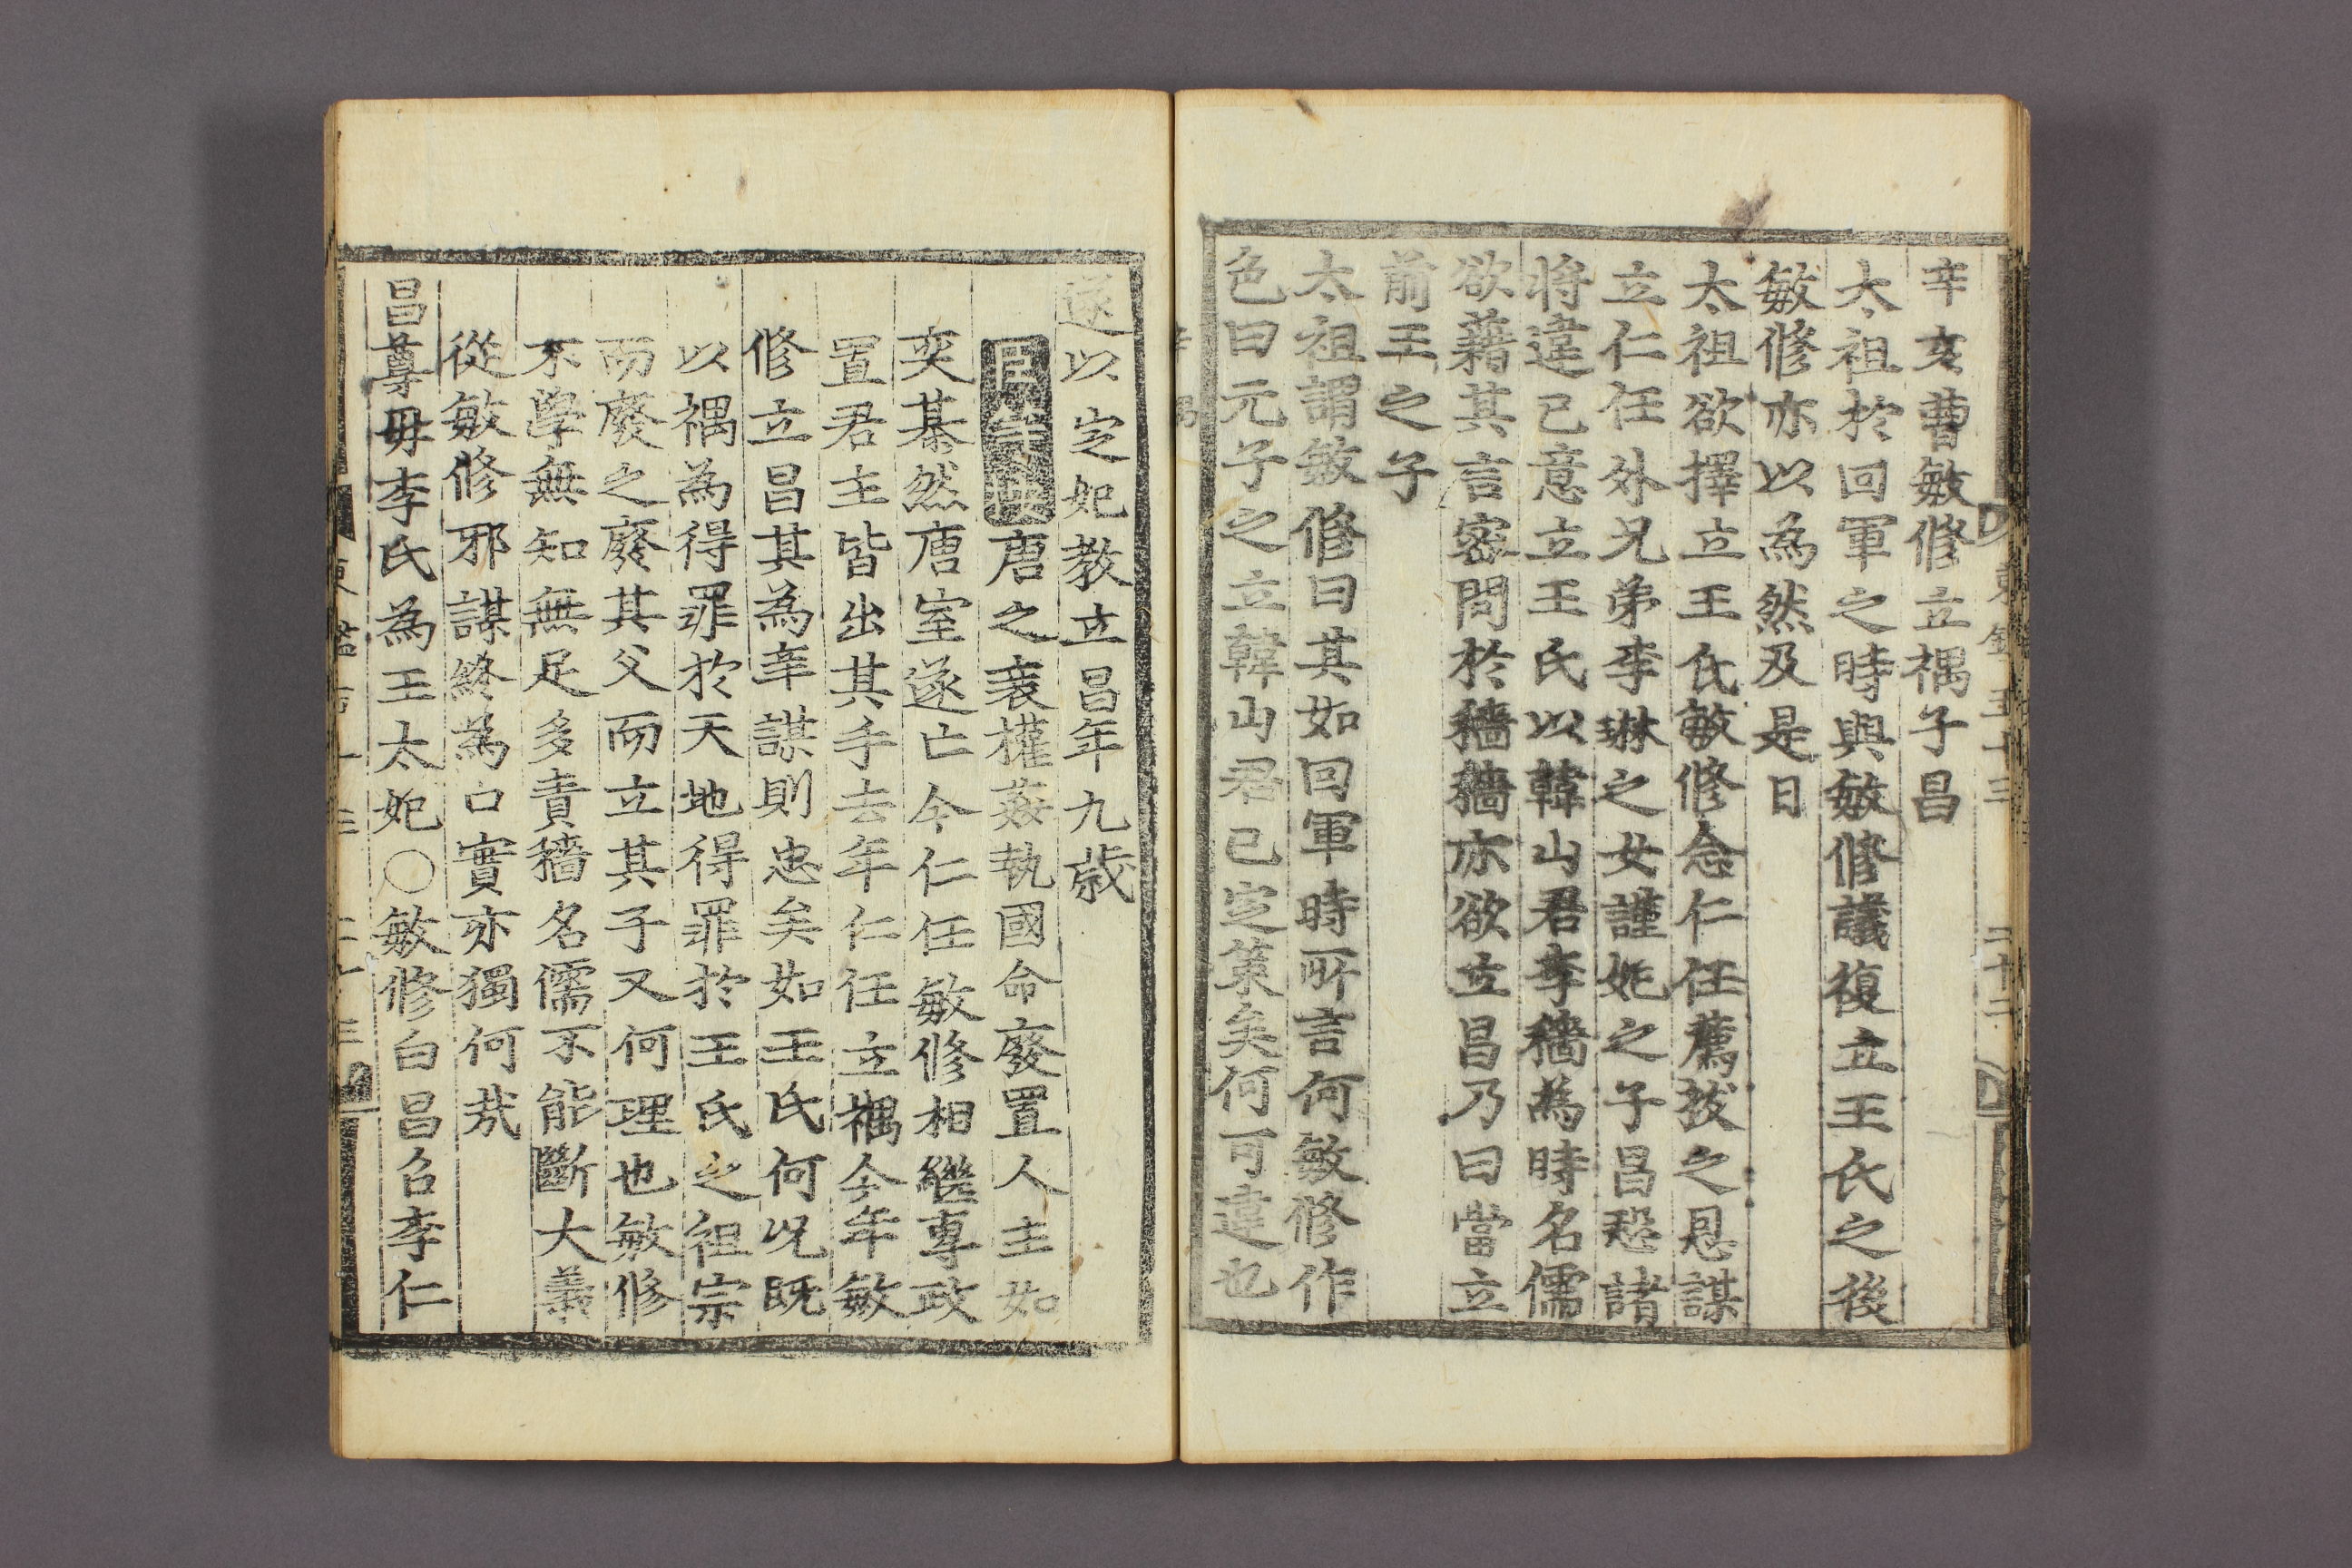 辛亥曹敏修立禑子昌
太祖於回軍之時與敏修議復立王氏之後
敏修亦以為然及是日
太祖欲擇立王氏敏修念仁任薦拔之恩謀
立仁任外兄弟李琳之女謹妃之子昌恐諸
將違己意立王氏以韓山君李穡為時名儒
欲藉其言密問於穡穡亦欲立昌乃曰當立
前王之子
太祖謂敏修曰其如回軍時所言何敏修作
色曰元子之立韓山君已定策矣何可違也
遂以定妃教立昌年九歲
唐之衰權姦執國命廢置人主如
奕棊然唐室遂亡今仁任敏修相繼專政
置君主皆出其手去年仁任立禑今年敏
修立昌其為辛謀則忠矣如王氏何況既
以禑為得罪於天地得罪於王氏之祖宗
而廢之廢其父而立其子又何理也敏修
不學無知無足多責穡名儒不能斷大義
從敏修邪謀終為口實亦獨何哉
昌尊毋李氏為王太妃○敏修白昌召李仁